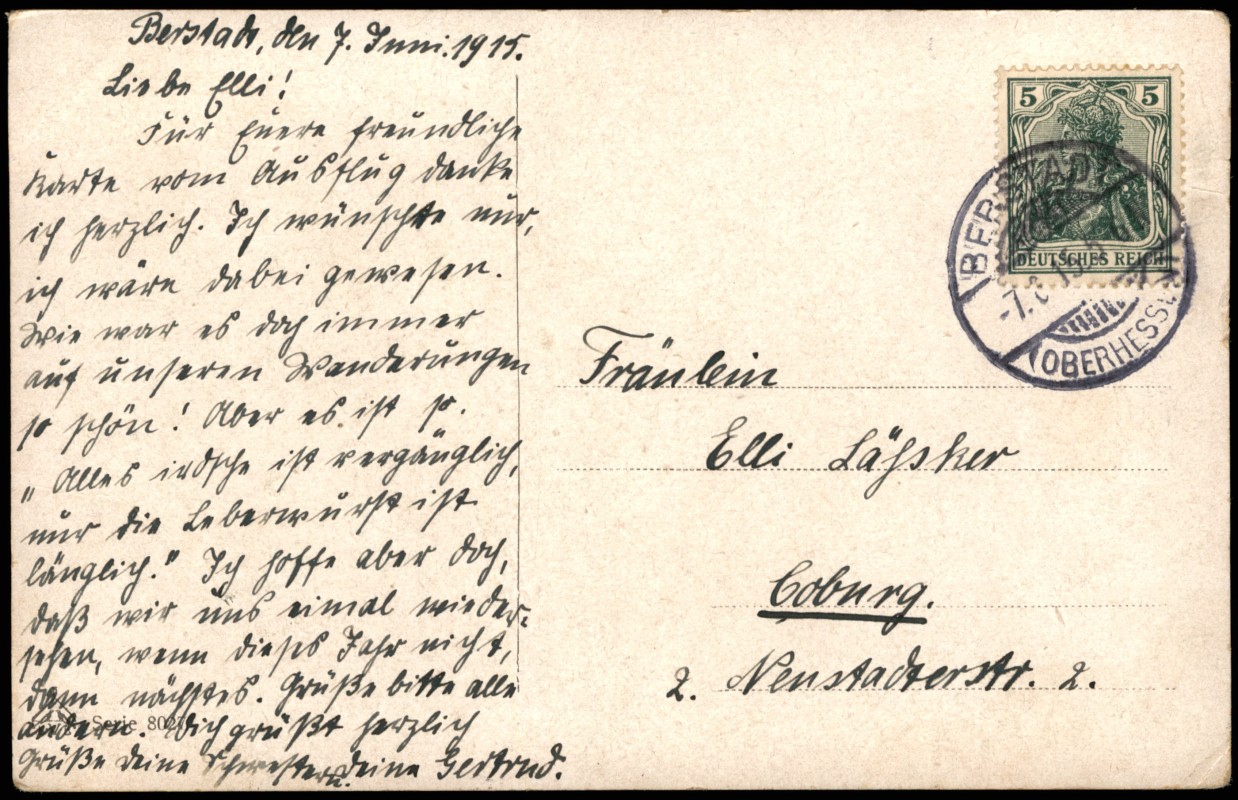 Berstadt, den 7. Juni. 1915.
Liebe Elli!
Für Euere freundliche
Karte vom Ausflug danke
ich herzlich. Ich wünschte nur,
ich wäre dabei gewesen.
Wie war es doch immer
auf unseren Wanderungen
so schön! Aber es ist so.
„Alles irdsche ist vergänglich,
nur die Leberwurst ist
länglich." Ich hoffe aber doch,
daß wir uns eimal wieder-
sehen, wenn dieses Jahr nicht,
dann nächstes. Grüße bitte alle
andern. Dich grüßt herzlich
Grüße deine Schwestern. deine Gertrud.
Serie 802
5 5
DEUTSCHES REICH
BERSTADT
-7.6.15.5
(OBERHESS
Fräulein
Elli
Coburg.
2. Neustadterstr. 2.